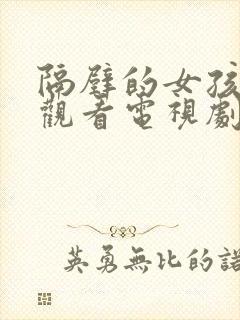 隔壁的女孩
觀看電視劇
英勇無比的諾